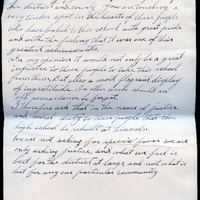 the district and county. You are touching a
very tender spot in the hearts of these people
who have looked to this school with great pride
and with the feeling that it was one of their
greatest achievements.
In my opinion it would not only be a great
injustice to these people to take this school
from them, but also a most flagrant display
of ingratitude. In other words should an
acquaintance be forgot.
I therefore ask that in the name of justice
and moral duty to these people that the
high school be rebuilt at Lincoln.
We are not asking for special favors we are
only asking justice, and what we feel is
best for the district at large, and not what is
best for any one particular community